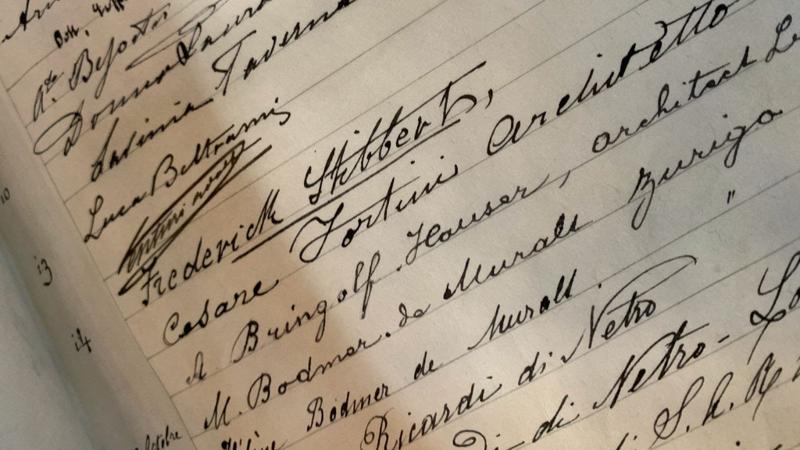 Dott.
A. Besostri
Donna Laura
Lavinia Taverna
Luca Beltrami
10
Frederick Stibbert,
13
Cesare Fortini Architetto
14
A Bringolf. Hauser, architect
M. Bodmer. de Muralt Zurigo
Bodmer de Muralt. "
Ricardi di Netro
di Netro -
di S. A. R